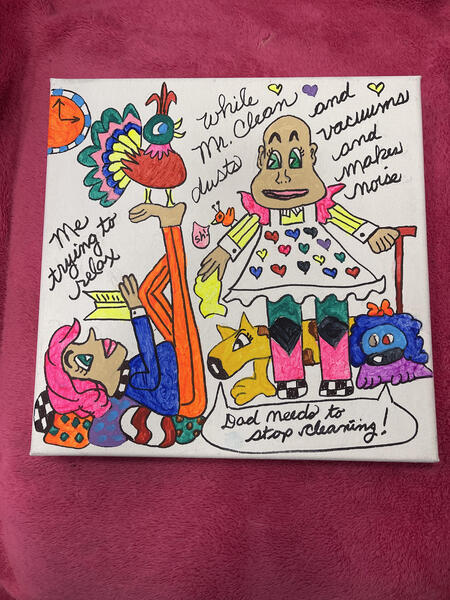 Me
trying to
relax
while
Mr. Clean
dusts
and
vacuums
and
makes
noise
Dad needs to
stop cleaning!